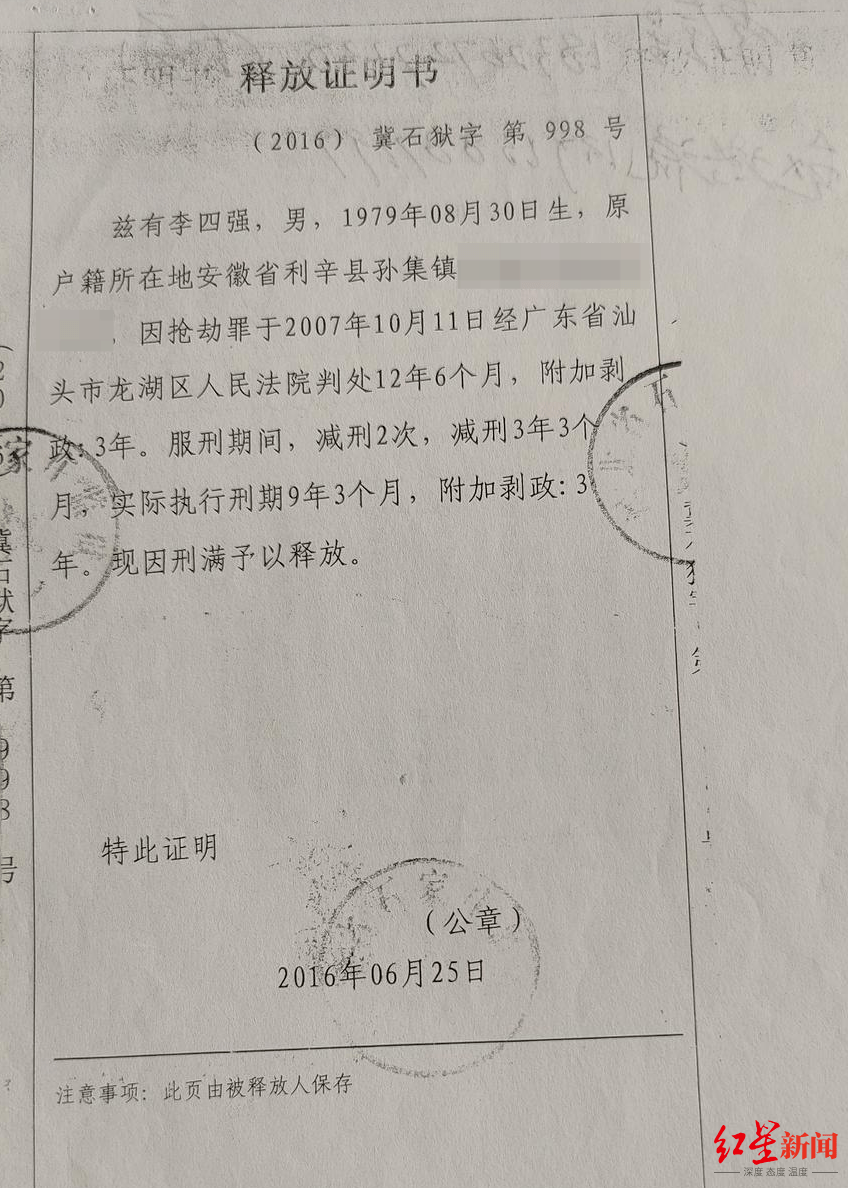 释放证明书
（2016）冀石狱字 第 998 号
兹有李四强，男，1979年08月30日生，原
户籍所在地安徽省利辛县孙集镇
，因抢劫罪于2007年10月11日经广东省汕
头市龙湖区人民法院判处12年6个月，附加剥
政：3年。服刑期间，减刑2次，减刑3年3个
月，实际执行刑期9年3个月，附加剥政：3
年。现因刑满予以释放。
特此证明
（公章）
2016年06月25日
注意事项：此页由被释放人保存
冀石狱字 第 998 号
红星新闻
深度 态度 温度